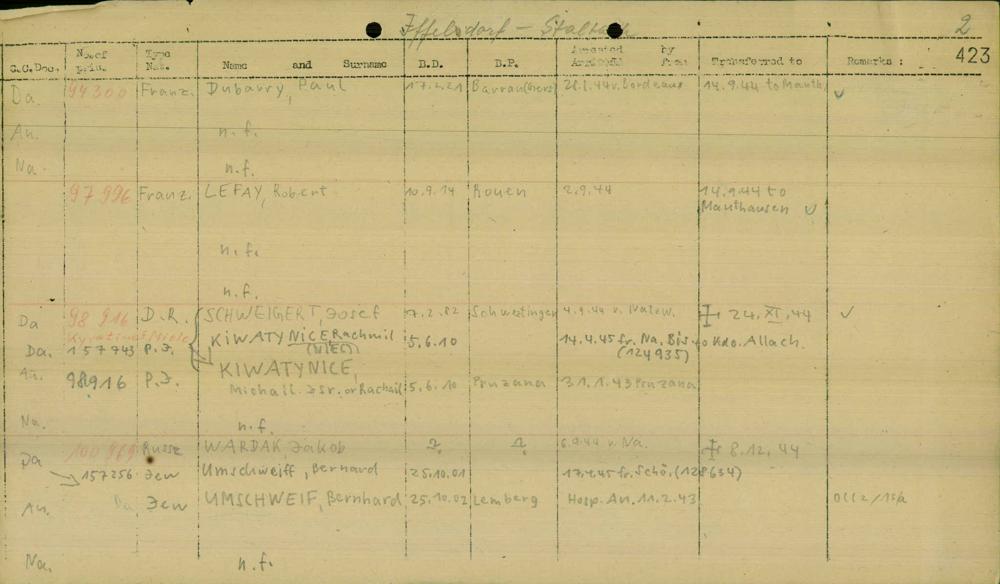 Iffelsdorf - Stalbach 2
423
C.C.Doc. No. of pris. Type Nat. Name and Surname B.D. B.P. Arrested by Arrived From Transferred to Remarks :
Da. 94300 Franz. Dubarry, Paul 17.4.21 28.8.44 v. Bordeaux 14.9.44 to Mauth. ✓
Au. n.f.
Na. n.f.
97996 Franz. LEFAY, Robert 10.9.14 Rouen 2.9.44 14.9.44 to
Mauthausen ✓
n.f.
n.f.
Da 98 916 D.R. SCHWEIGERT, Josef 17.2.82 Schwetzingen 4.9.44 v. Natzw. ┼ 24.XI.44 ✓
Da. 157743 P.J. KIWATYNICE Rachmil 5.6.10 14.4.45 fr. Na. Bis to Kdo. Allach.
(NIEC) (124935)
KIWATYNICE,
Au. 98916 P.J. Michail Isr. or Rachail 5.6.10 Pruzana 31.1.43 Pruzana
Na. n.f.
Da 100 969 Russe WARDAK Jakob ? ? 6.9.44 v. Na. ┼ 8.12.44
157256 Jew Umschweiff, Bernard 25.10.01 17.4.45 fr. Schö. (128634)
Au. Da Jew UMSCHWEIF, Bernhard 25.10.02 Lemberg Hosp. Au. 11.2.43
Na. n.f.